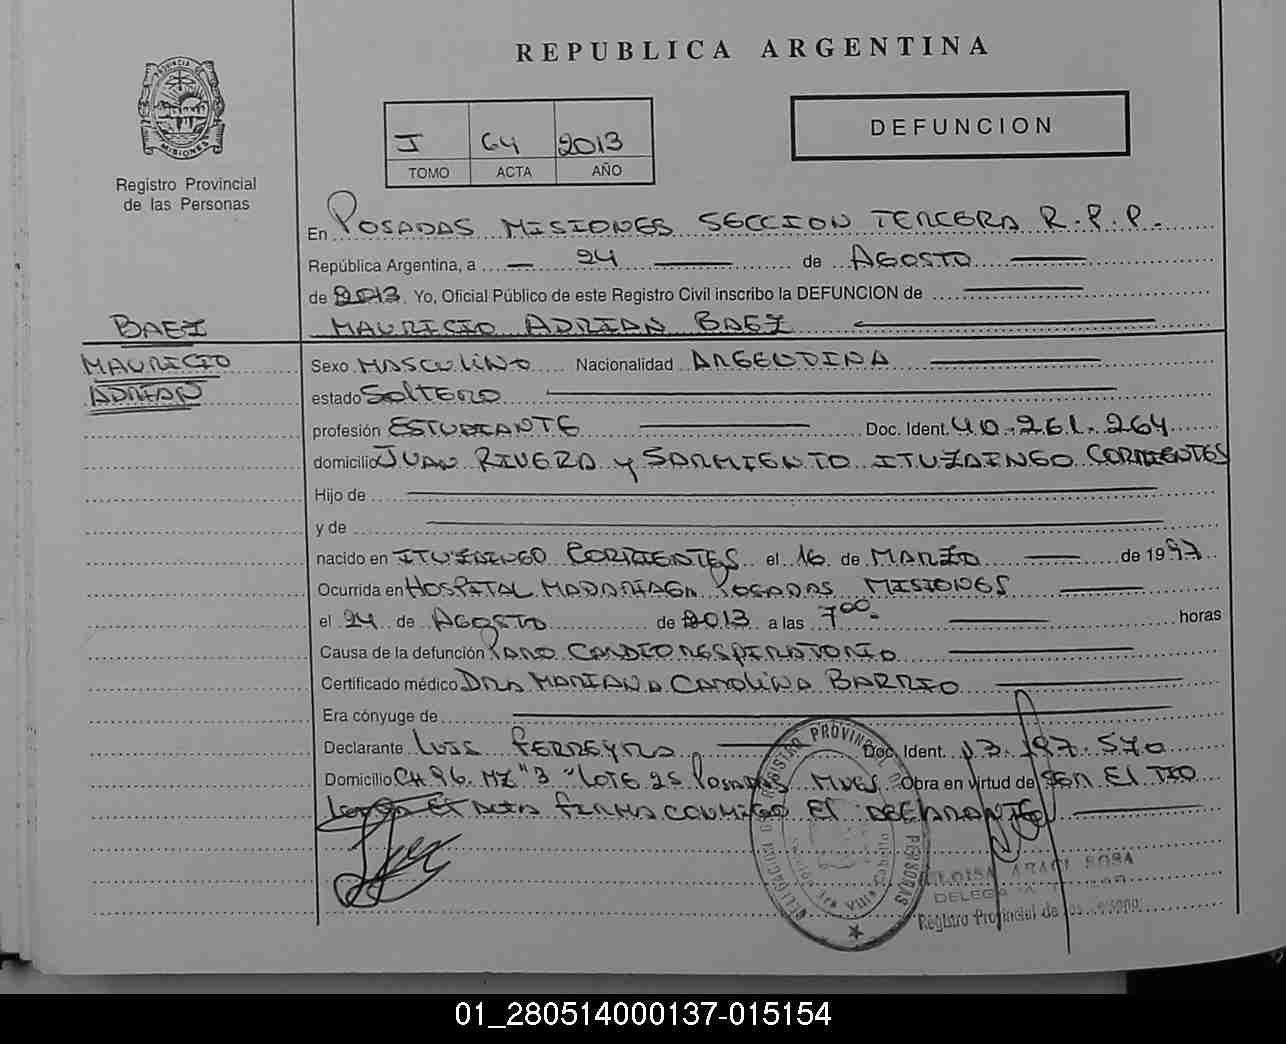 REPUBLICA ARGENTINA
PROVINCIA DE MISIONES
Registro Provincial
de las Personas
I 64 2013
TOMO ACTA AÑO
DEFUNCION
En POSADAS MISIONES SECCION TERCERA R.P.P.
República Argentina, a 24 de AGOSTO
de 2013. Yo, Oficial Público de este Registro Civil inscribo la DEFUNCION de
MAURICIO ADRIAN BAEZ
BAEZ
MAURICIO
ADRIAN
Sexo MASCULINO Nacionalidad ARGENTINA
estado SOLTERO
profesión ESTUDIANTE Doc. Ident. 40.261.264
domicilio JUAN RIVERA y SARMIENTO ITUZAINGO CORRIENTES
Hijo de
y de
nacido en ITUZAINGO CORRIENTES el 16 de MARZO de 1997
Ocurrida en HOSPITAL MADARIAGA POSADAS MISIONES
el 24 de AGOSTO de 2013 a las 700 horas
Causa de la defunción PARO CARDIORESPIRATORIO
Certificado médico DRA MARIANA CAROLINA BARRIO
Era cónyuge de
Declarante LUIS FERREYRA Doc. Ident. 13.197.570
Domicilio CH 96. MZ "3" LOTE 25 POSADAS MNES Obra en virtud de SER EL TIO
ACTA FIRMA CONMIGO EL DECLARANTE
REGISTRO PROVINCIAL DE PERSONAS
DELEGACION
ARACI SOSA
Registro Provincial de las Personas
01_280514000137-015154